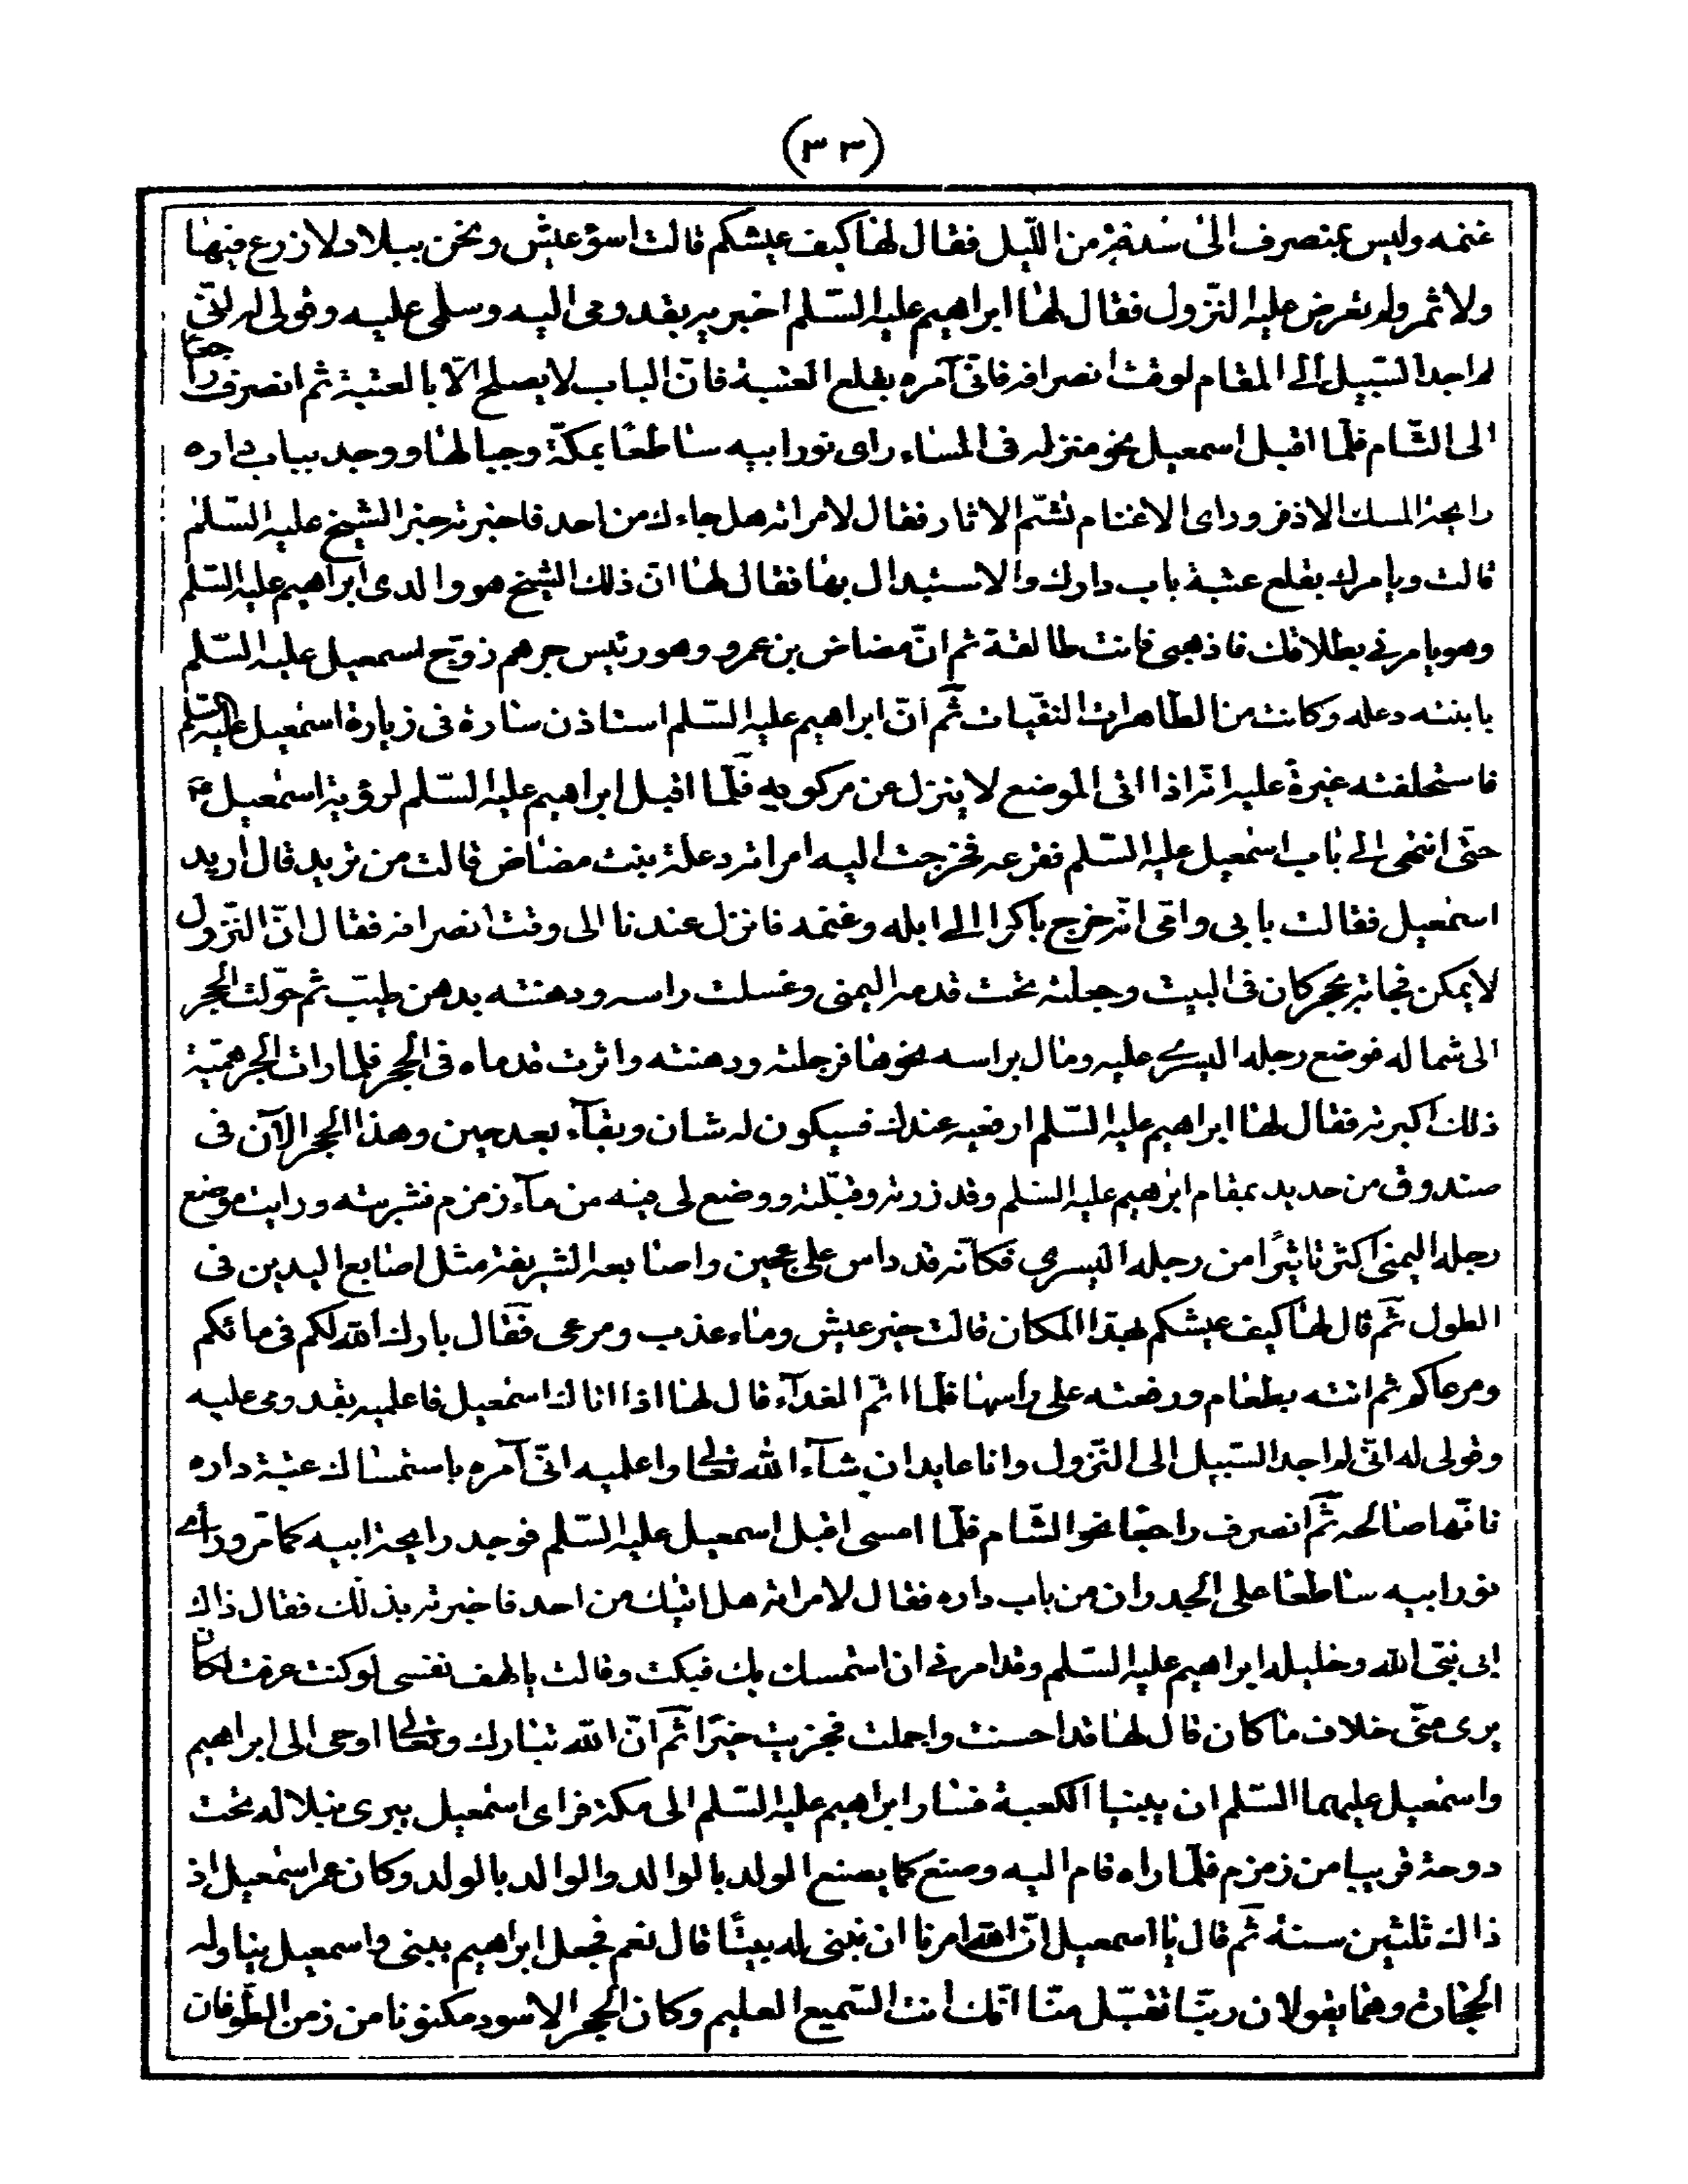 (٣٣)
غنمه وليس بمنصرف الى من الليل فقال لها كيف عيشكم قالت اسوء عيش ونحن ببلاد لا زرع فيها
ولا ثمر ولم تعرض عليه النزول فقال لها ابراهيم عليه السلم اخبريه بقدومى اليه وسلمى عليه وقولى له انى
لم اجد السبيل الى المقام لوقت انصرافه فانى آمره بقلع العتبة فان الباب لا يصلح الا بالعتبة ثم انصرف راجعا
الى الشام فلما اقبل اسمعيل نحو منزله فى المساء راى نور ابيه ساطعا بمكة وجبالها ووجد بباب داره
رايحة المسك الاذفر وراى الاغنام تشتم الاثار فقال لامراته هل جاءك من احد فاخبرته خبر الشيخ عليه السلم
قالت ويامرك بقلع عتبة باب دارك والاستبدال بها فقال لها ان ذلك الشيخ هو والدى ابراهيم عليه السلم
وهو يامرنى بطلاقك فاذهبى فانت طالقة ثم ان مضاض بن عمرو وهو رئيس جرهم زوج اسمعيل عليه السلم
بابنته دعله وكانت من الطاهرات النقيات ثم ان ابراهيم عليه السلم استاذن سارة فى زيارة اسمعيل عليه السلم
فاستحلفته غيرة عليه انه اذا اتى الموضع لا ينزل عن مركوبه فلما اقبل ابراهيم عليه السلم لرؤية اسمعيل ع
حتى انتهى الى باب اسمعيل عليه السلم فقرعه فخرجت اليه امراته دعلة بنت مضاض قالت من تريد قال اريد
اسمعيل فقالت بابى وامى انه خرج باكرا الى ابله وغنمه فانزل عندنا الى وقت انصرافه فقال ان النزول
لا يمكن فجائته بحجر كان فى البيت وجعلته تحت قدمه اليمنى وغسلت راسه ودهنته بدهن طيب ثم حولت الحجر
الى شماله فوضع رجله اليسرى عليه ومال براسه نحوها فرجلته ودهنته واثرت قدماه فى الحجر فلما رات الجرهمية
ذلك اكبرته فقال لها ابراهيم عليه السلم ارفعيه عندك فسيكون له شان وبقآء بعد حين وهذا الحجر الآن فى
صندوق من حديد بمقام ابرهيم عليه السلم وقد زرته وقبلته ووضع لى فيه من مآء زمزم فشربته ورايت موضع
رجله اليمنى اكثر تاثيرًا من رجله اليسرى فكانه قد داس على عجين واصابعه الشريفة مثل اصابع اليدين فى
الطول ثم قال لها كيف عيشكم بهذا المكان قالت خير عيش وماء عذب ومرعى فقال بارك الله لكم فى مائكم
ومرعاكم ثم اتته بطعام ورفعته على راسها فلما اتم الغدآء قال لها اذا اتاك اسمعيل فاعلميه بقدومى عليه
وقولى له انى لم اجد السبيل الى النزول وانا عايد ان شآء الله تعالى واعلميه انى آمره باستمساك عتبة داره
فانها صالحه ثم انصرف راجعا نحو الشام فلما امسى اقبل اسمعيل عليه السلم فوجد رايحة ابيه كما مر وراى
نور ابيه ساطعا على الجدران من باب داره فقال لامراته هل اتيك من احد فاخبرته بذلك فقال ذاك
ابى نبى الله وخليله ابراهيم عليه السلم وقد امرنى ان استمسك بك فبكت وقالت يا لهف نفسى لو كنت عرفت لكان
يرى منى خلاف ما كان قال لها قد احسنت واجملت فجزيت خيرًا ثم ان الله تبارك وتعالى اوحى الى ابراهيم
واسمعيل عليهما السلم ان يبنيا الكعبة فسار ابراهيم عليه السلم الى مكة فراى اسمعيل يبرى نبلا له تحت
دوحة قريبا من زمزم فلما راه قام اليه وصنع كما يصنع المولد بالوالد والوالد بالولد وكان عمر اسمعيل اذ
ذاك ثلثين سنة ثم قال يا اسمعيل ان الله امرنا ان نبنى له بيتًا قال نعم فجعل ابراهيم يبنى واسمعيل يناوله
الحجارة وهما يقولان ربنا تقبل منا انك انت السميع العليم وكان الحجر الاسود مكنونا من زمن الطوفان